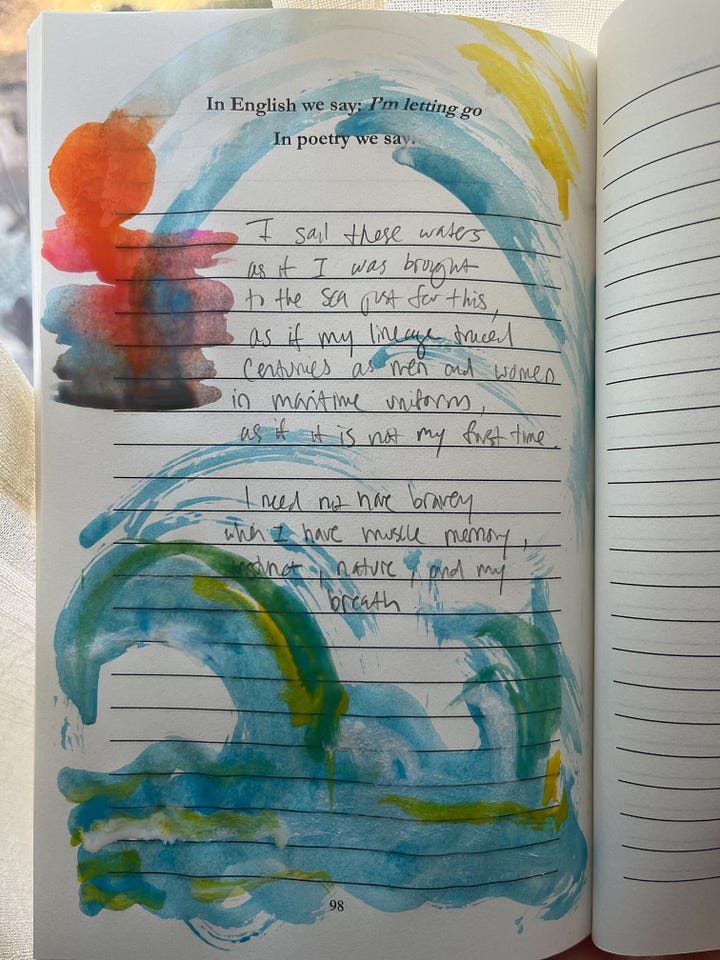 In English we say: I'm letting go
In poetry we say:
I sail these waters
as if I was brought
to the sea just for this,
as if my lineage traced
centuries as men and women
in maritime uniforms,
as if it is not my first time.
I need not have bravery
when I have muscle memory,
instinct, nature, and my
breath
98